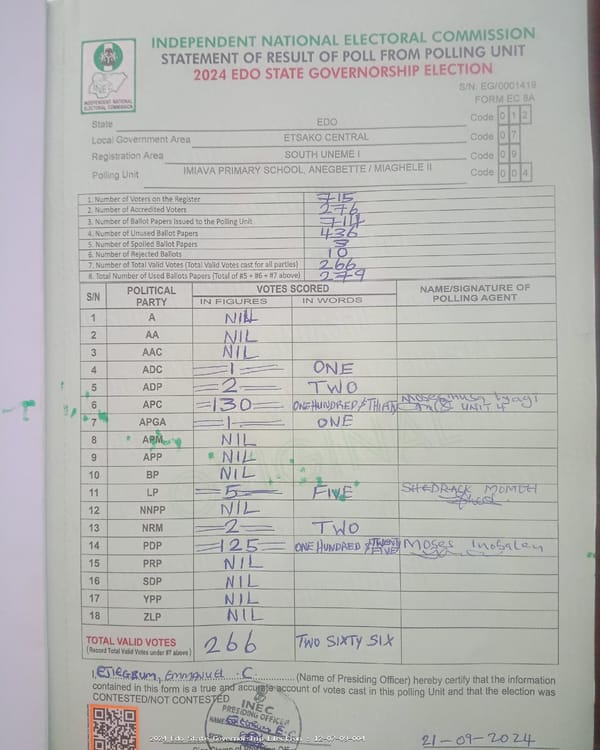 INDEPENDENT NATIONAL ELECTORAL COMMISSION
STATEMENT OF RESULT OF POLL FROM POLLING UNIT
2024 EDO STATE GOVERNORSHIP ELECTION
INEC
INDEPENDENT NATIONAL ELECTORAL COMMISSION
S/N: EG/0001419
FORM EC 8A
State EDO Code 0 1 2
Local Government Area ETSAKO CENTRAL Code 0 7
Registration Area SOUTH UNEME I Code 0 9
Polling Unit IMIAVA PRIMARY SCHOOL, ANEGBETTE / MIAGHELE II Code 0 0 4
1. Number of Voters on the Register 715
2. Number of Accredited Voters 276
3. Number of Ballot Papers Issued to the Polling Unit 714
4. Number of Unused Ballot Papers 436
5. Number of Spoiled Ballot Papers
6. Number of Rejected Ballots 10
7. Number of Total Valid Votes (Total Valid Votes cast for all parties) 266
8. Total Number of Used Ballots Papers (Total of #5 + #6 + #7 above) 279
S/N POLITICAL PARTY VOTES SCORED NAME/SIGNATURE OF POLLING AGENT
IN FIGURES IN WORDS
1 A NIL
2 AA NIL
3 AAC NIL
4 ADC 1 ONE
5 ADP 2 TWO
6 APC 130 ONE HUNDRED & THIRTY UNIT 4
7 APGA 1 ONE
8 APM NIL
9 APP NIL
10 BP NIL
11 LP 5 FIVE SHEDRACK MOMOH
12 NNPP NIL
13 NRM 2 TWO
14 PDP 125 ONE HUNDRED & TWENTY FIVE Moses
15 PRP NIL
16 SDP NIL
17 YPP NIL
18 ZLP NIL
TOTAL VALID VOTES 266 TWO SIXTY SIX
(Record Total Valid Votes under #7 above)
I, EMMANUEL .C. (Name of Presiding Officer) hereby certify that the information
contained in this form is a true and accurate account of votes cast in this polling Unit and that the election was
CONTESTED/NOT CONTESTED
INEC
PRESIDING OFFICER
21-09-2024
2024 Edo State Governorship Election - 12-07-09-004